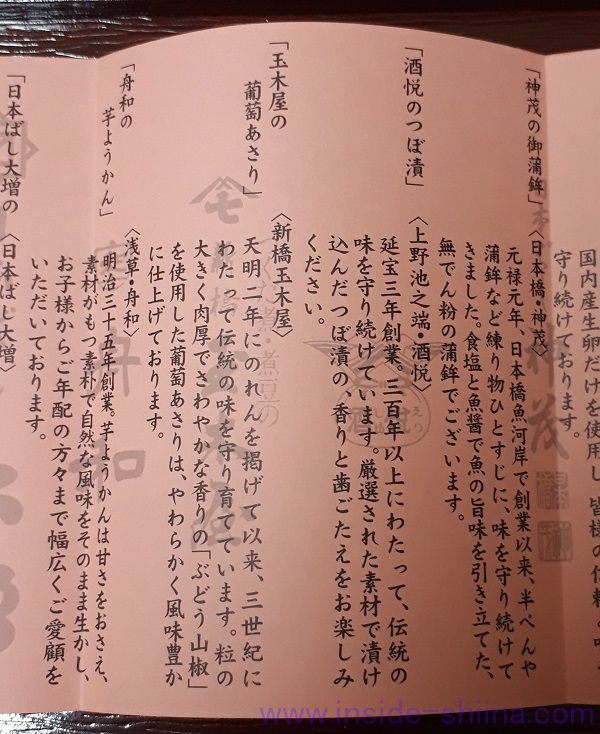 国内産生卵だけを使用し、皆様の信頼と
守り続けております。
「神茂の御蒲鉾」〈日本橋・神茂〉
元禄元年、日本橋魚河岸で創業以来、半ぺんや
蒲鉾など練り物ひとすじに、味を守り続けて
きました。食塩と魚醬で魚の旨味を引き立てた、
無でん粉の蒲鉾でございます。
「酒悦のつぼ漬」〈上野池之端・酒悦〉
延宝三年創業。三百年以上にわたって、伝統の
味を守り続けています。厳選された素材で漬け
込んだつぼ漬の香りと歯ごたえをお楽しみ
ください。
「玉木屋の
葡萄あさり」〈新橋玉木屋〉
天明二年にのれんを掲げて以来、三世紀に
わたって伝統の味を守り育てています。粒の
大きく肉厚でさわやかな香りの「ぶどう山椒」
を使用した葡萄あさりは、やわらかく風味豊か
に仕上げております。
「舟和の
芋ようかん」〈浅草・舟和〉
明治三十五年創業。芋ようかんは甘さをおさえ、
素材がもつ素朴で自然な風味をそのまま生かし、
お子様からご年配の方々まで幅広くご愛顧を
いただいております。
「日本ばし大増の〈日本ばし大増〉
www.inside-shiina.com